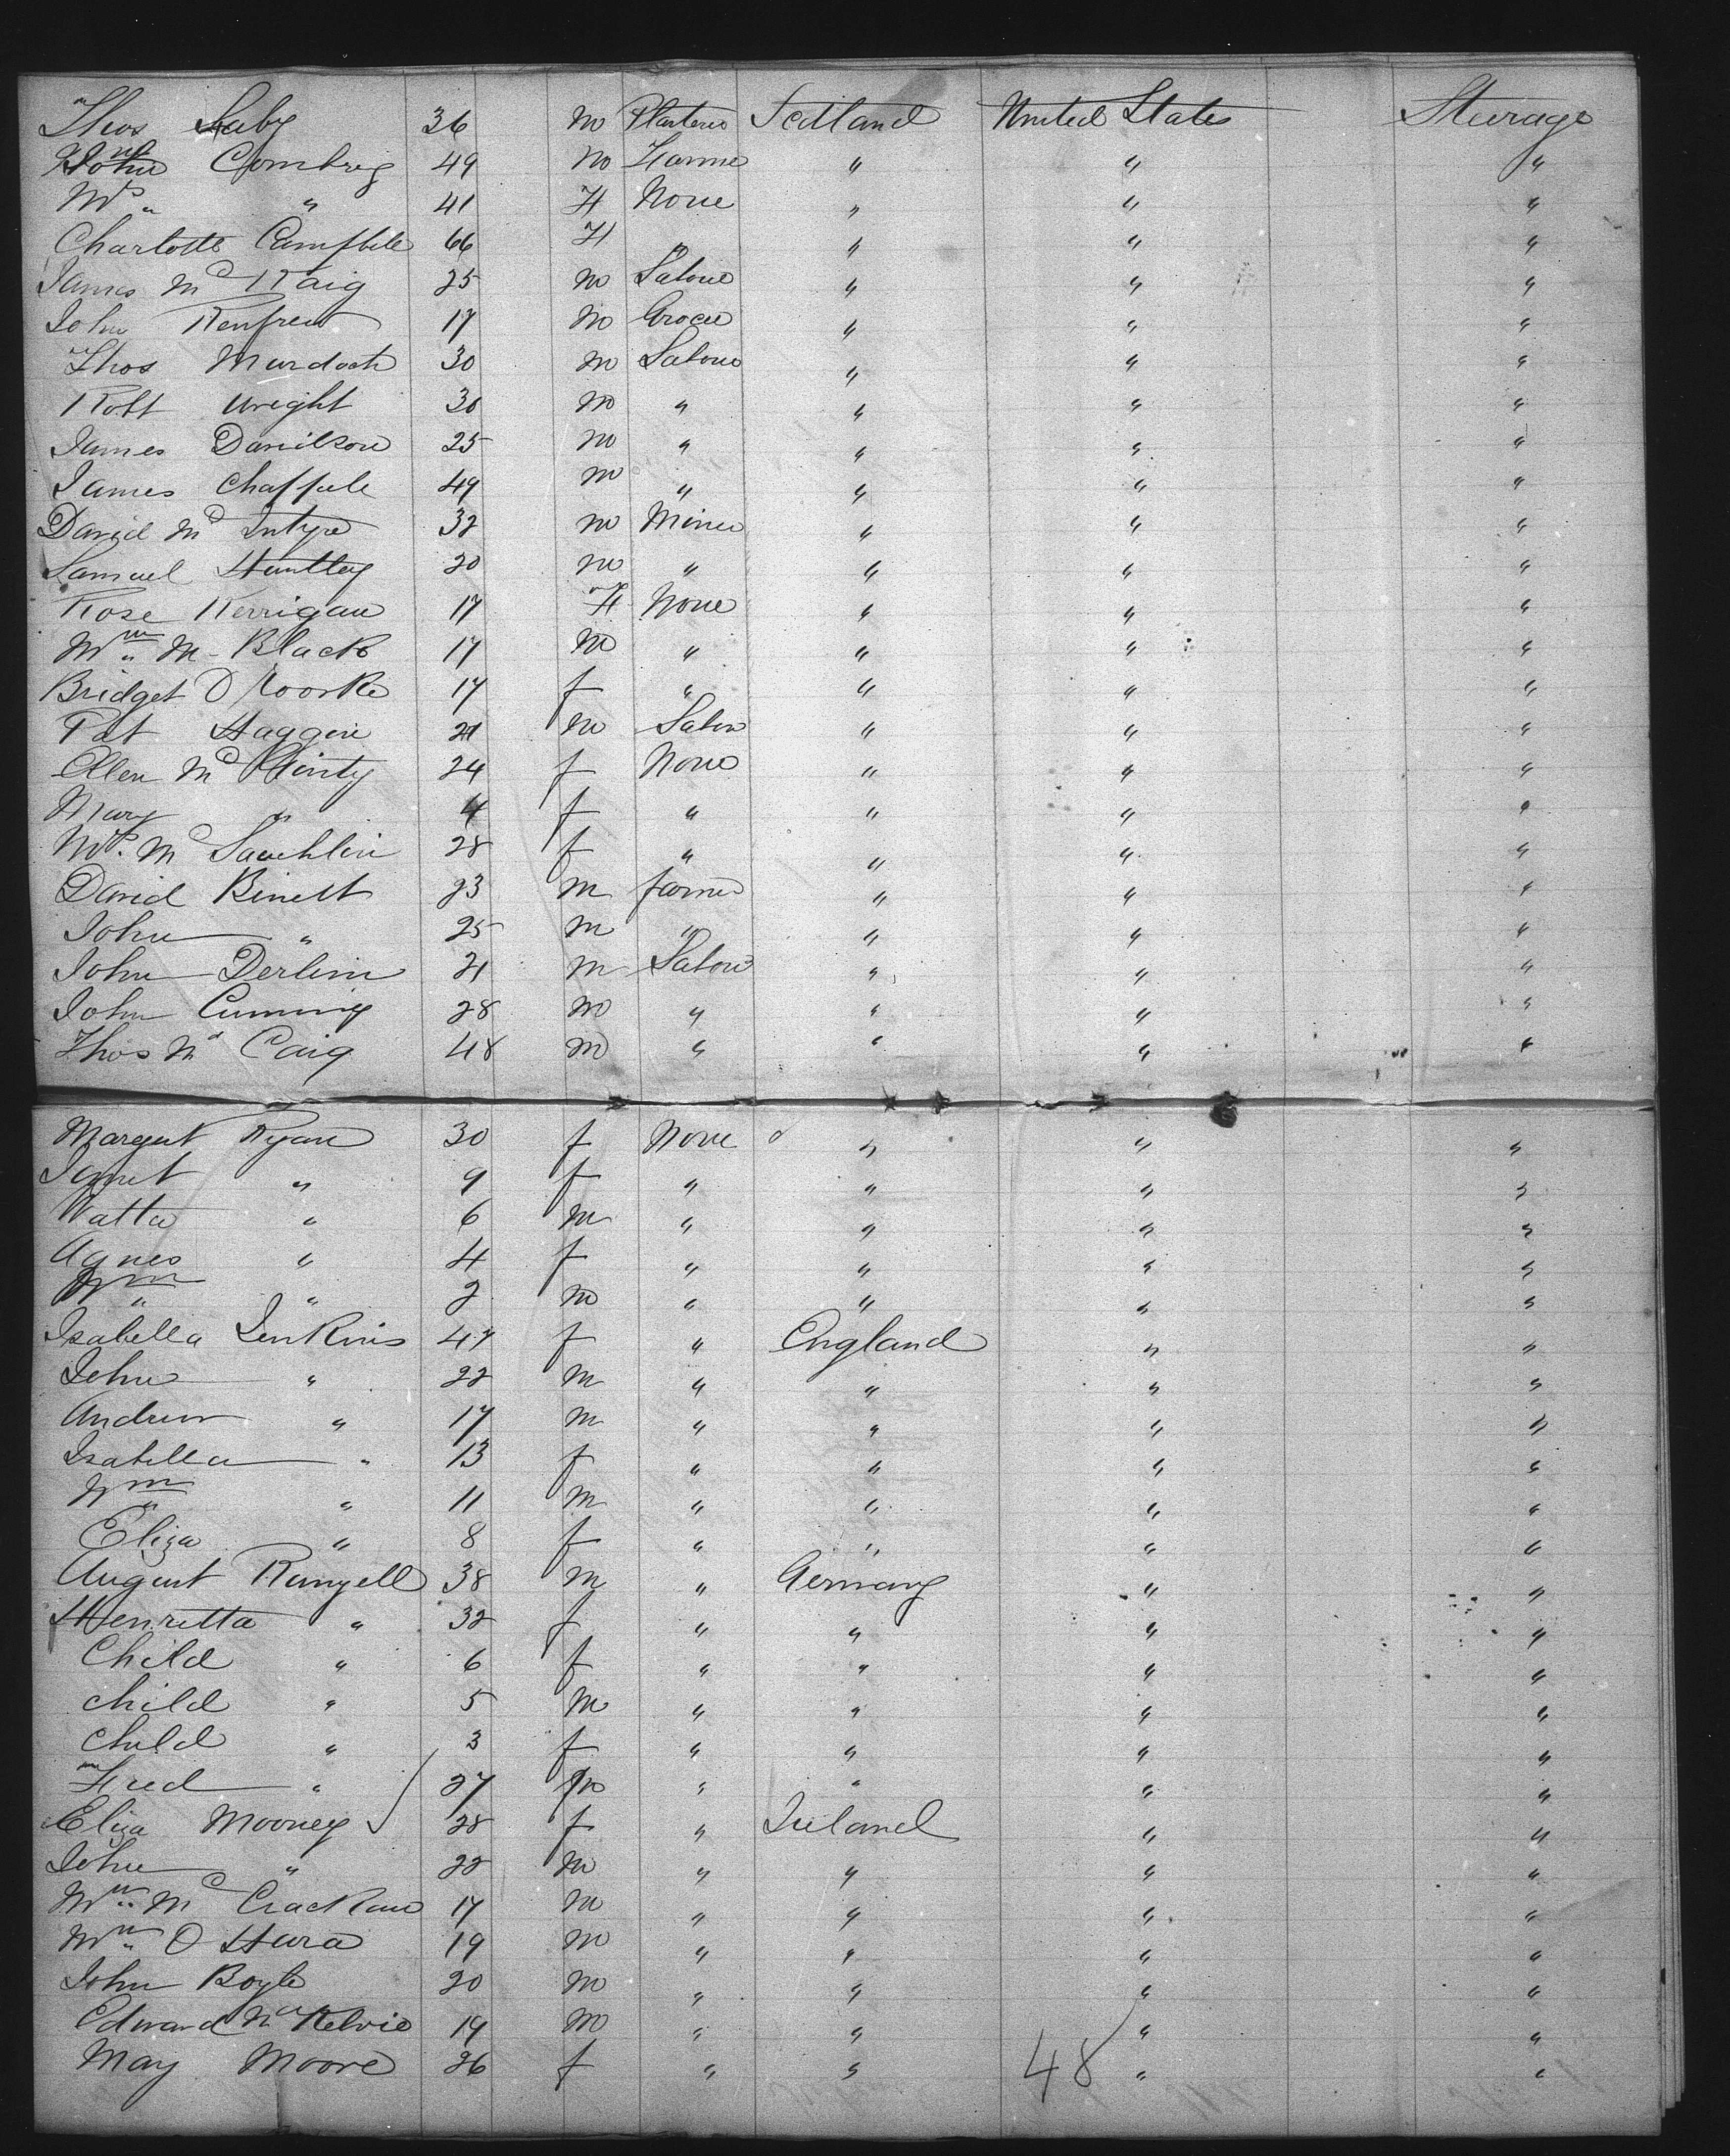 Thos Laby 36 m Plasterer Scotland United States Steerage
John Combrig 49 m Farmer " " "
Mrs " " 41 F None " " "
Charlotte Campbele 66 F " " " "
James Mc Kaig 25 m Labour " " "
John Renfrew 17 m Grocer " " "
Thos Murdoch 30 m Labour " " "
Robt Wright 30 m " " " "
James Danielson 25 m " " " "
James Chappele 49 m " " " "
David Mc Intyre 32 m Miner " " "
Samuel Huntley 20 m " " " "
Rose Kerrigan 17 F None " " "
Wm M- Black 17 m " " " "
Bridget O Roorke 17 f " " " "
Pat Haggen 21 m Labor " " "
Ellen Mc Ginty 24 f None " " "
Mary " 4 f " " " "
Mrs. Mc Lauchlin 28 f " " " "
David Binett 23 m farmer " " "
John " 25 m " " " "
John Derlin 21 m Labour " " "
John Cuming 28 m " " " "
Thos Mc Caig 48 m " " " "
Margret Ryan 30 f None " " "
Janet " 9 f " " " "
Watta " 6 m " " " "
Agnes " 4 f " " " "
Wm " 2 m " " " "
Isabella Jenkins 47 f " England " "
John " 22 m " " " "
Andrew " 17 m " " " "
Isabella " 13 f " " " "
Wm " 11 m " " " "
Eliza " 8 f " " " "
August Rungell 38 m " Germany " "
Henretta " 32 f " " " "
Child " 6 f " " " "
child " 5 m " " " "
Child " 3 f " " " "
Fred " 27 m " " " "
Eliza Mooney 28 f " Ireland " "
John " 22 m " " " "
Wm Mc Crackan 17 m " " " "
Wm O Hara 19 m " " " "
John Boyle 20 m " " " "
Edward Mc Kelvie 19 m " " " "
May Moore 26 f " " " "
48